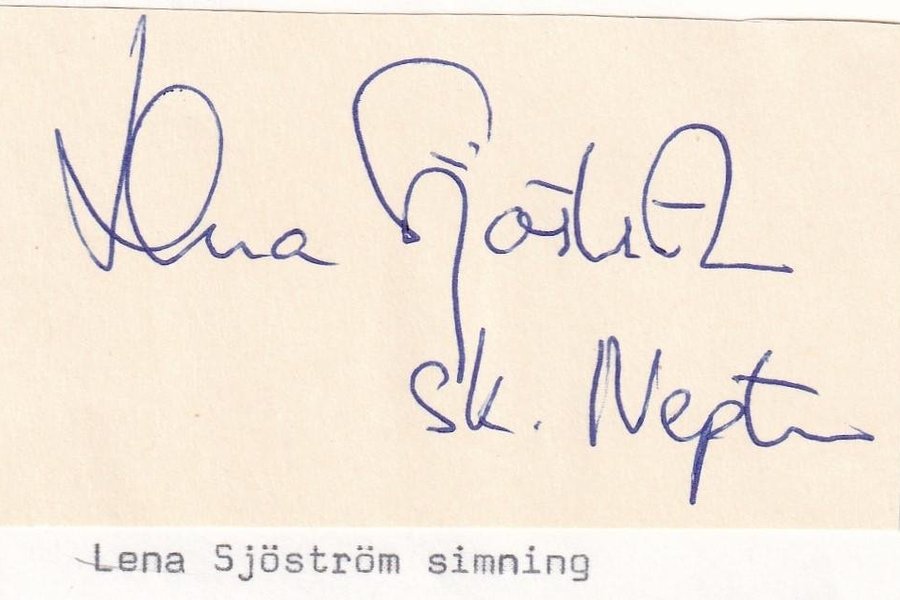 Lena Sjöström
sk. Neptun
Lena Sjöström simning